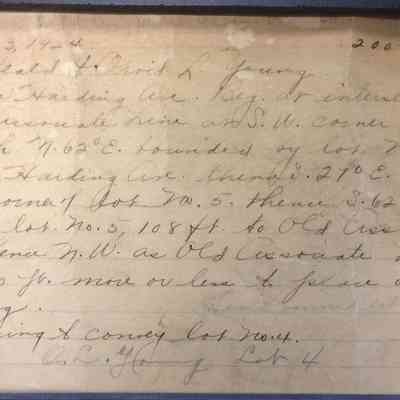 3, 1924 200
& Ovid L. Young
Harding Ave. Beg. at inters
Associate Line at S. W. corner
N. 62° E. bounded by lot N
Harding Ave. thence S. 27° E.
corner of lot No. 5. thence S. 62
lot No. 5, 108 ft. to Old Ass
thence N. W. as Old Associate
ft. more or less to place o
g.
ing to convey lot No. 4.
O. L. Young Lot 4